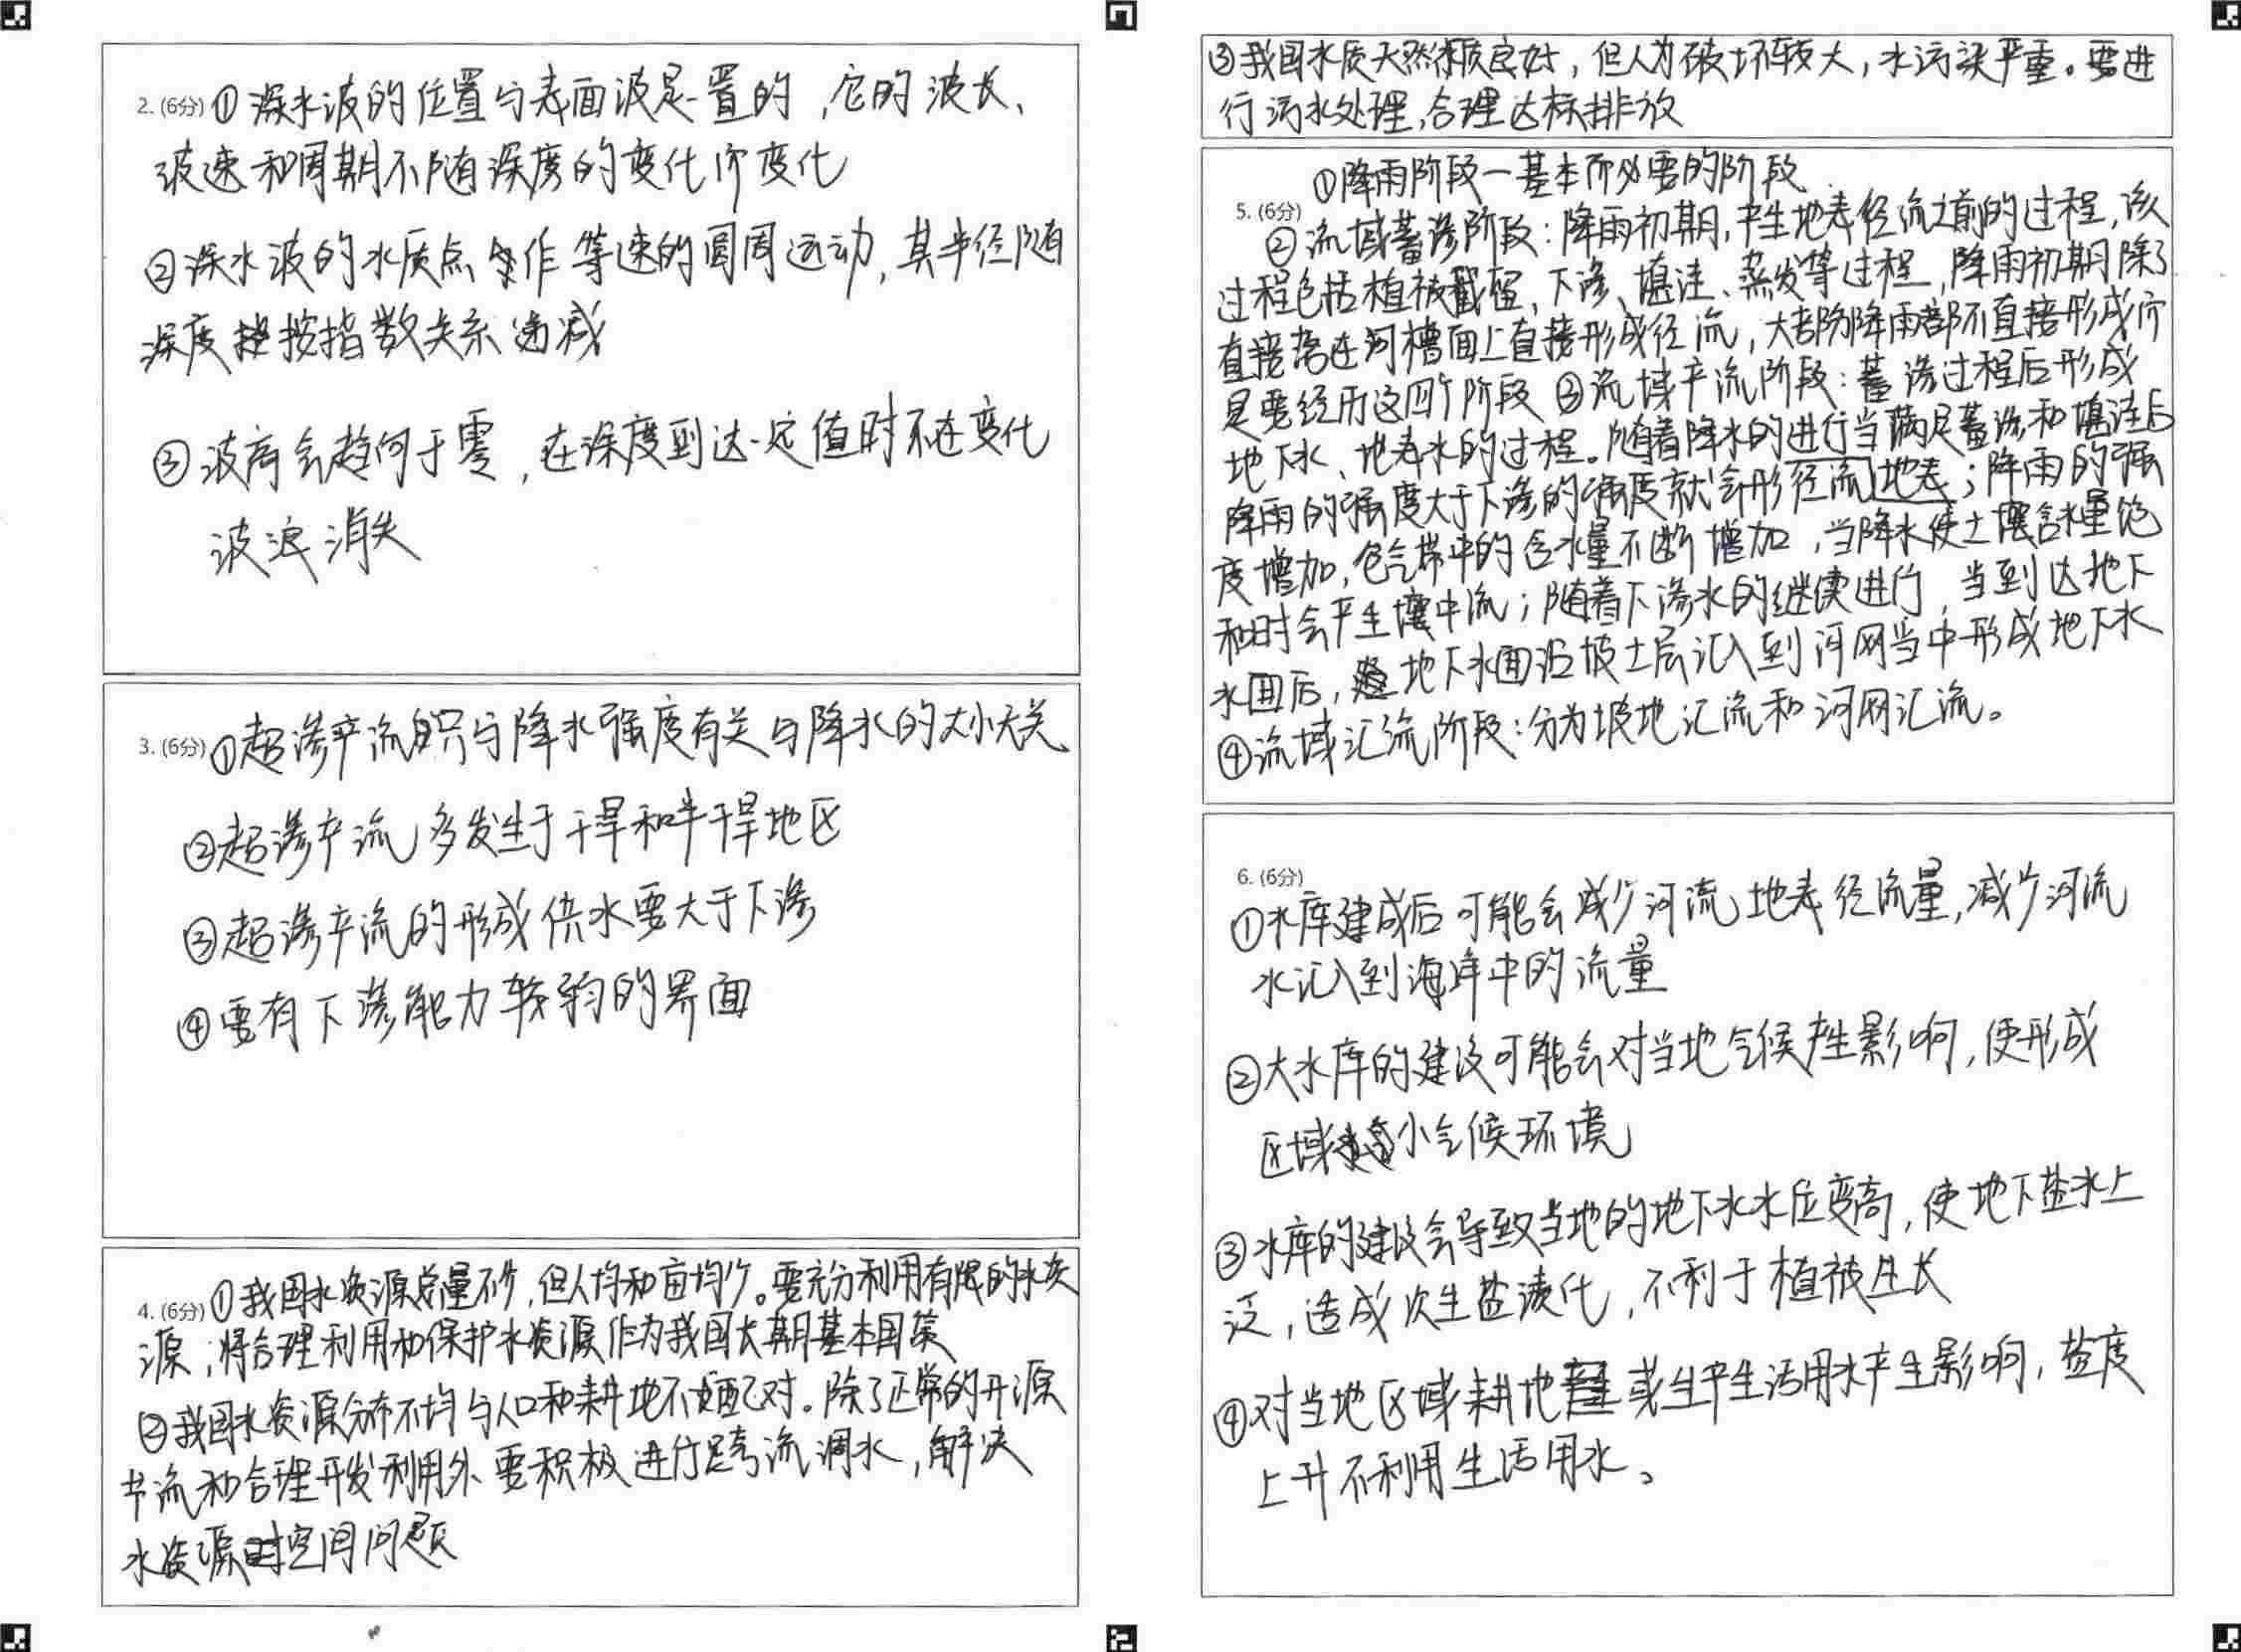 2. (6分) ①深水波的位置与表面波是一置的，它的波长、
波速和周期不随深度的变化价变化
②深水波的水质点作等速的圆周运动，其半径随
深度按指数关系递减
③波高会趋向于零，在深度到达一定值时不在变化
波浪消失
3. (6分) ①超渗产流只与降水强度有关与降水的大小无关
②超渗产流多发生于干旱和半干旱地区
③超渗产流的形成供水要大于下渗
④要有下渗能力较弱的界面
4. (6分) ①我国水资源总量不少，但人均和亩均少。要充分利用有限的水资
源；将合理利用和保护水资源作为我国长期基本国策
②我国水资源分布不均与人口和耕地不匹配对。除了正常的开源
节流和合理开发利用外要积极进行跨流调水，解决
水资源时空间问题
③我国水质天然水质良好，但人为破坏较大，水污染严重。要进
行污水处理，合理达标排放
①降雨阶段一基本而必要的阶段
5. (6分)
②流域蓄渗阶段：降雨初期，产生地表径流之前的过程，该
过程包括植被截留、下渗、填洼、蒸发等过程，降雨初期除了
直接落在河槽面上直接形成径流，大部份降雨都不直接形成而
是要经历这四个阶段③流域产流阶段：蓄渗过程后形成
地下水、地表水的过程。随着降水的进行当满足蓄渗和填洼后
降雨的强度大于下渗的强度就会形径流地表；降雨的强
度增加，包气带中的含水量不断增加，当降水使土壤含水量饱
和时会产生壤中流；随着下渗水的继续进行，当到达地下
水面后，地下水面沿坡土层汇入到河网当中形成地下水
④流域汇流阶段：分为坡地汇流和河网汇流。
6. (6分)
①水库建成后可能会减少河流地表径流量，减少河流
水汇入到海洋中的流量
②大水库的建设可能会对当地气候产生影响，使形成
区域小气候环境
③水库的建设会导致当地的地下水水位变高，使地下盐水上
泛，造成次生盐渍化，不利于植被生长
④对当地区域耕地或生产生活用水产生影响，盐度
上升不利用生活用水。